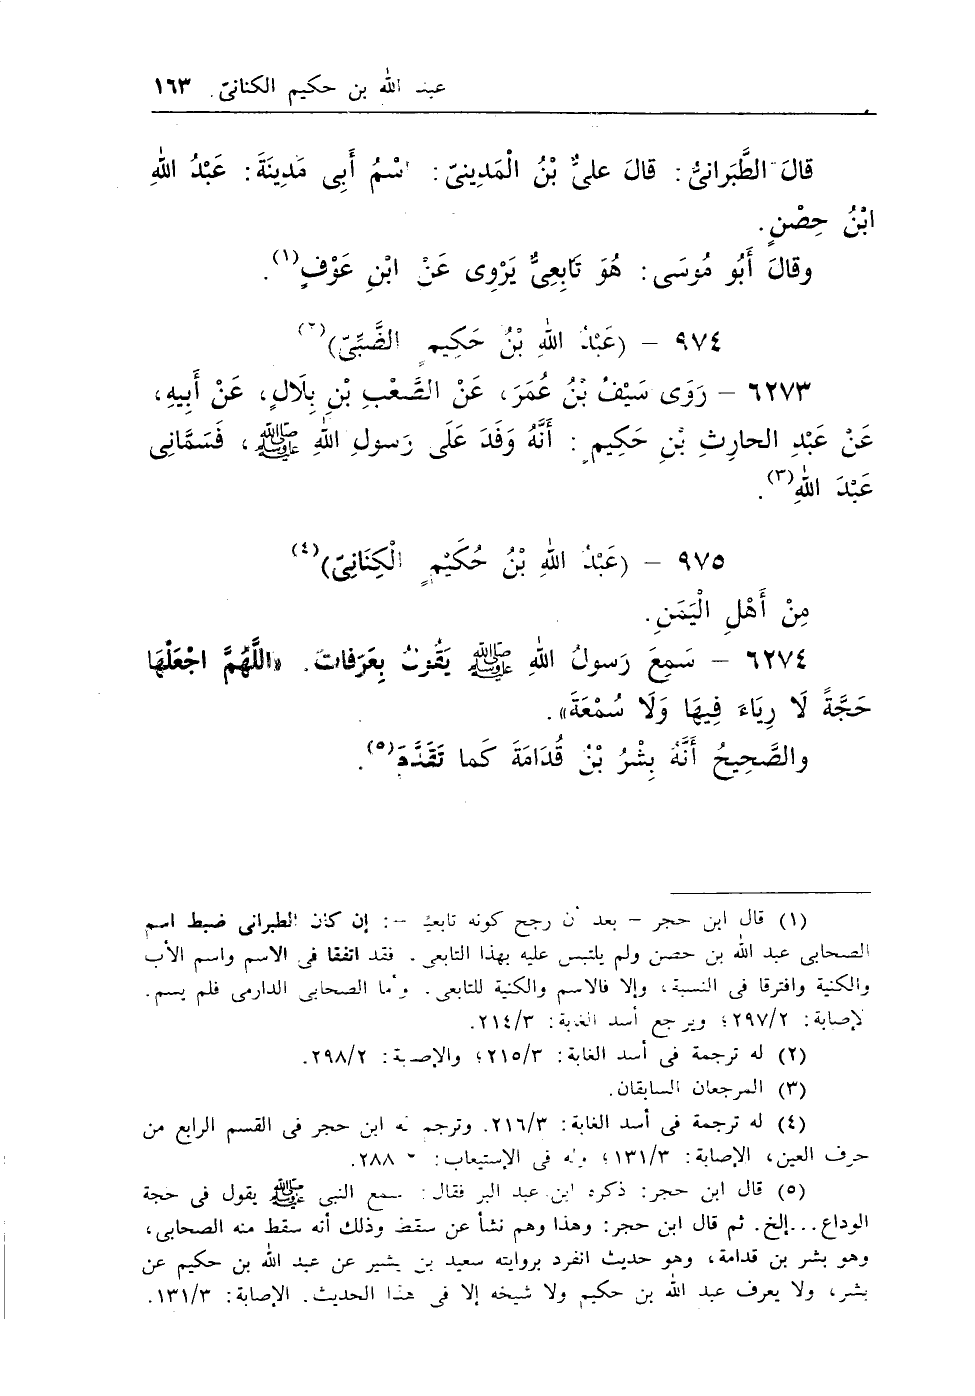 عبد الله بن حكيم الكنانىّ. ١٦٣
قالَ الطَّبَرانىُّ: قالَ علىُّ بْنُ الْمَدِينىّ: اسْمُ أَبِى مَدِينَةَ: عَبْدُ اللهِ
ابْنُ حِصْنٍ.
وقالَ أَبُو مُوسَى: هُوَ تَابِعِىٌّ يَرْوِى عَنْ ابْنِ عَوْفٍ(١).
٩٧٤ – (عَبْدُ اللهِ بْنُ حَكِيمٍ الضَّبِّىّ)(٢)
٦٢٧٣ – رَوَى سَيْفُ بْنُ عُمَرَ، عَنْ الصَّعْبِ بْنِ بِلَالٍ، عَنْ أَبِيهِ،
عَنْ عَبْدِ الحارِثِ بْنِ حَكِيمٍ: أَنَّهُ وَفَدَ عَلَى رَسولِ اللهِ ﷺ، فَسَمَّانِى
عَبْدَ اللهِ(٣).
٩٧٥ – (عَبْدُ اللهِ بْنُ حُكَيْمٍ الْكِنَانِىّ)(٤)
مِنْ أَهْلِ الْيَمَنِ.
٦٢٧٤ – سَمِعَ رَسولُ اللهِ ﷺ يَقُولُ بِعَرَفاتَ. «اللَّهُمَّ اجْعَلْهَا
حَجَّةً لَا رِيَاءَ فِيهَا وَلَا سُمْعَةَ».
والصَّحِيحُ أَنَّهُ بِشْرُ بْنُ قُدَامَةَ كَما تَقَدَّمَ(٥).
(١) قال ابن حجر – بعد أن رجح كونه تابعيًا –: إن كان الطبرانى ضبط اسم
الصحابى عبد الله بن حصن ولم يلتبس عليه بهذا التابعى. فقد اتفقا فى الاسم واسم الأب
والكنية وافترقا فى النسبة، وإلا فالاسم والكنية للتابعى. وأما الصحابى الدارمى فلم يسم.
الإصابة: ٢/‏٢٩٧؛ ويرجع أسد الغابة: ٣/‏٢١٤.
(٢) له ترجمة فى أسد الغابة: ٣/‏٢١٥؛ والإصابة: ٢/‏٢٩٨.
(٣) المرجعان السابقان.
(٤) له ترجمة فى أسد الغابة: ٣/‏٢١٦. وترجم له ابن حجر فى القسم الرابع من
حرف العين، الإصابة: ٣/‏١٣١؛ وله فى الإستيعاب: ٢٨٨.
(٥) قال ابن حجر: ذكره ابن عبد البر فقال: سمع النبى ﷺ يقول فى حجة
الوداع...إلخ. ثم قال ابن حجر: وهذا وهم نشأ عن سقط وذلك أنه سقط منه الصحابى،
وهو بشر بن قدامة، وهو حديث انفرد بروايته سعيد بن بشير عن عبد الله بن حكيم عن
بشر، ولا يعرف عبد الله بن حكيم ولا شيخه إلا فى هذا الحديث. الإصابة: ٣/‏١٣١.